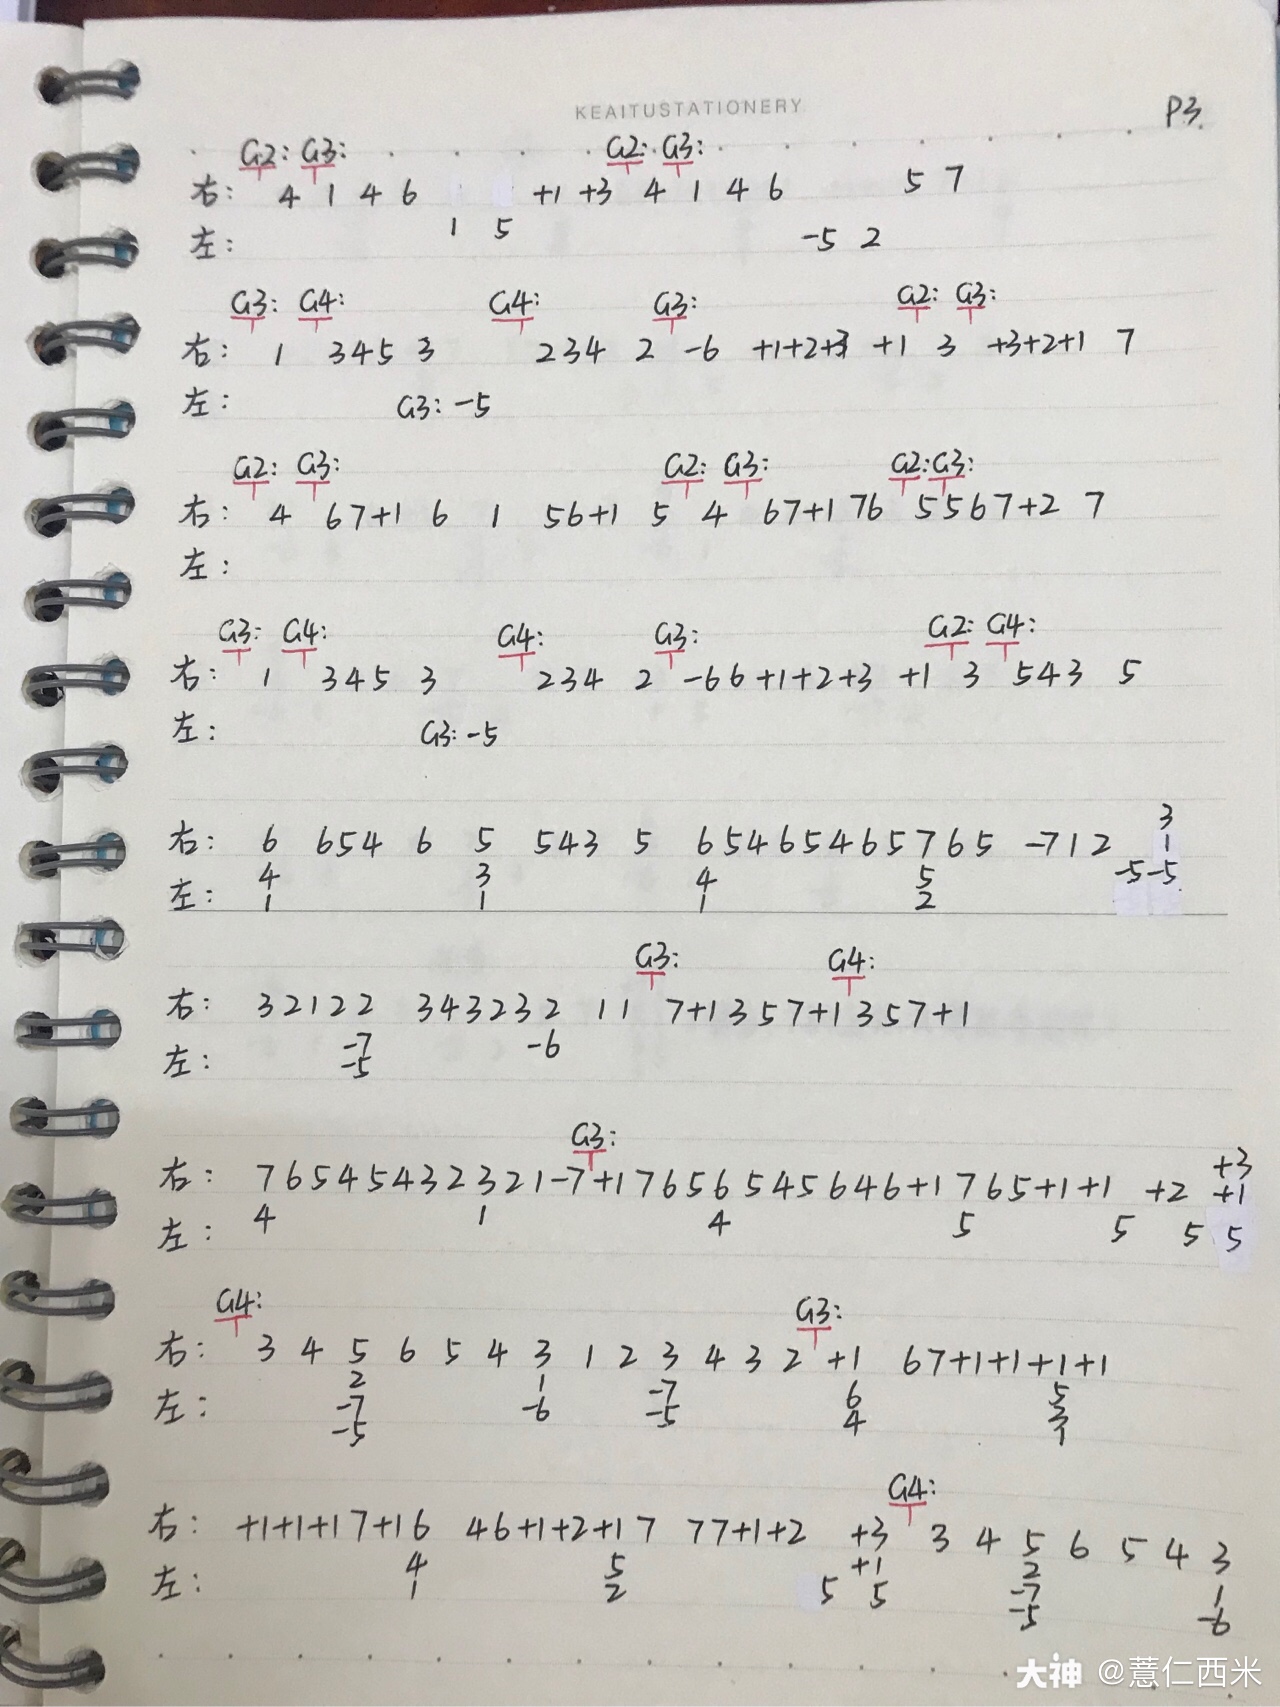 KEAITUSTATIONERY
P3.
G2: G3: G2: G3:
右: 4 1 4 6 +1 +3 4 1 4 6 5 7
左: 1 5 -5 2
G3: G4: G4: G3: G2: G3:
右: 1 345 3 234 2 -6 +1+2+3 +1 3 +3+2+1 7
左: G3: -5
G2: G3: G2: G3: G2: G3:
右: 4 67+1 6 1 56+1 5 4 67+1 76 5567+2 7
左:
G3: G4: G4: G3: G2: G4:
右: 1 345 3 234 2 -66+1+2+3 +1 3 543 5
左: G3: -5
3
右: 6 654 6 5 543 5 65465465765 -712 1
4 3 4 5 -5-5
左: 1 1 1 2
G3: G4:
右: 32122 343232 11 7+1357+1357+1
-7 -6
左: -5
G3:
+3
右: 76545432321-7+1765654564 6+1765+1+1 +2 +1
左: 4 1 4 5 5 5 5
G4: G3:
右: 3 4 5 6 5 4 3 1 2 3 4 3 2 +1 67+1+1+1+1
2 1 -7 6 5
左: -7 -6 -5 4 3
-5 1
G4:
右: +1+1+17+16 46+1+2+17 77+1+2 +3 3 4 5 6 5 4 3
4 5 +1 2 1
左: 1 2 5 5 -7 -6
-5
大神 @薏仁西米